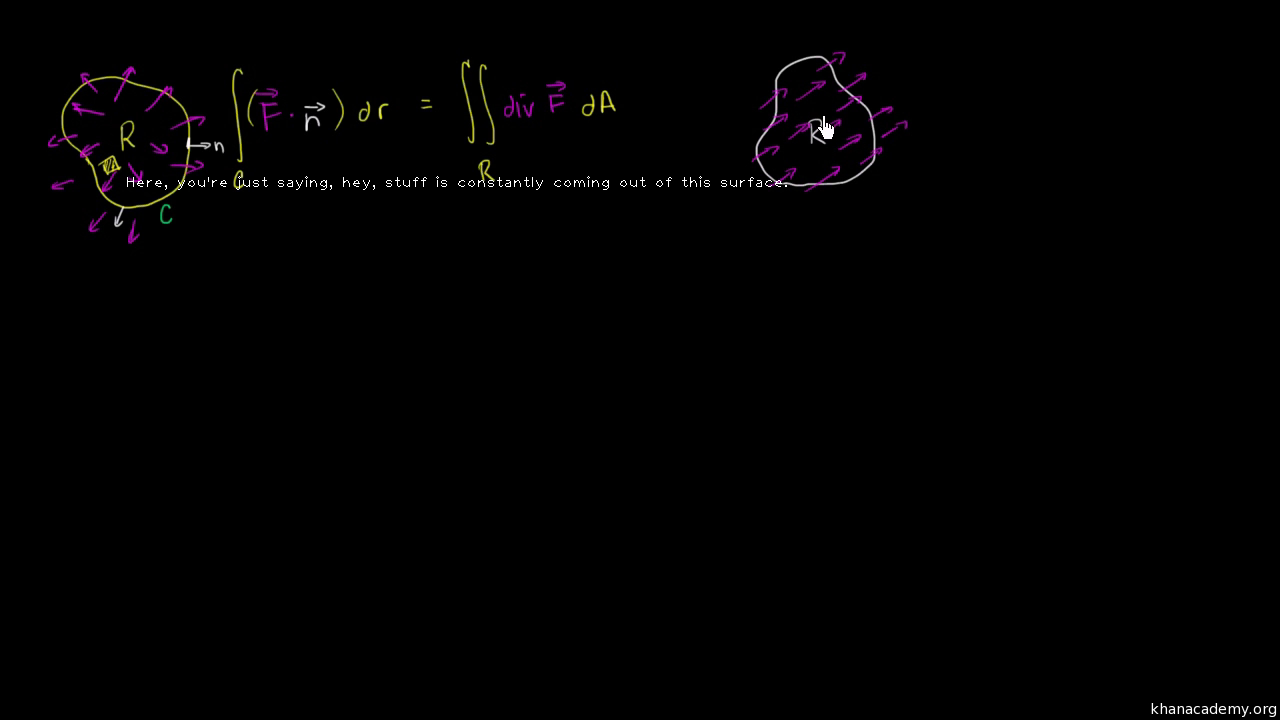 R
n
C
∫ (F⃗ · n⃗) dr = ∬ div F⃗ dA
R
R
Here, you're just saying, hey, stuff is constantly coming out of this surface.
khanacademy.org